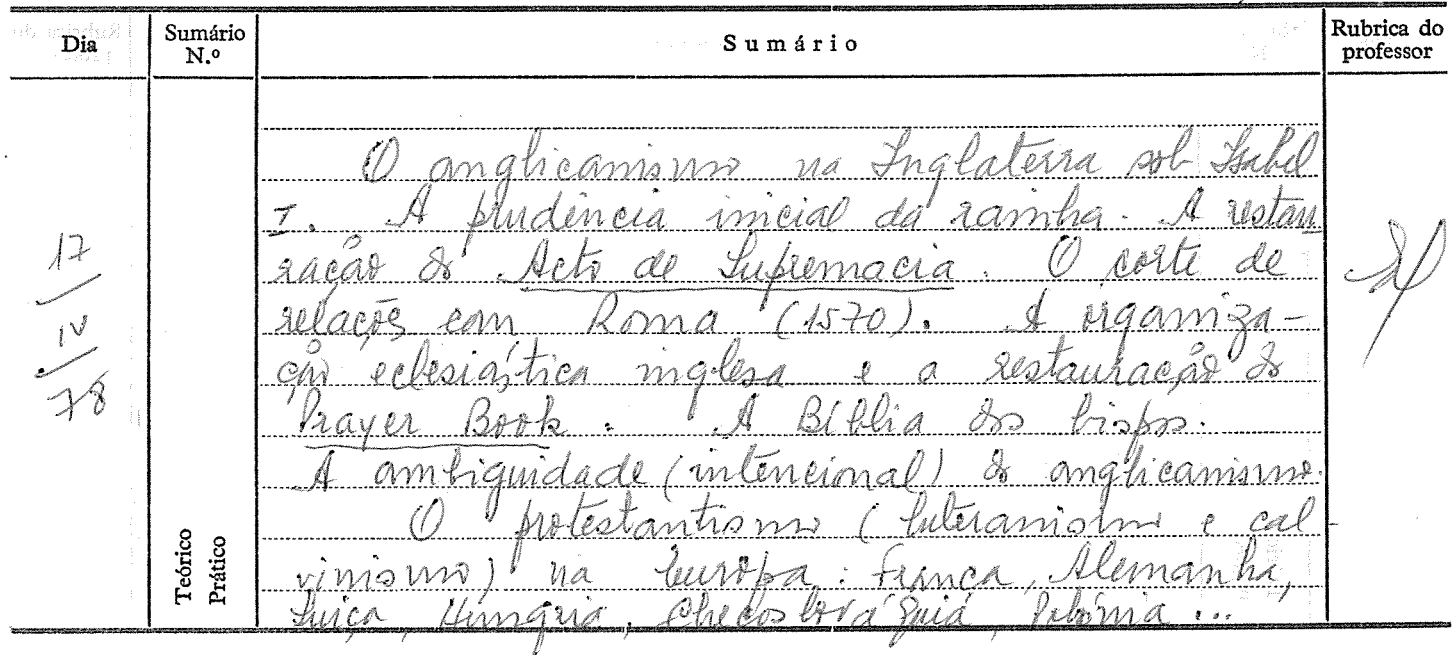 Dia
Sumário N.º
Sumário
Rubrica do professor
O anglicanismo na Inglaterra sob Isabel
I. A prudência inicial da rainha. A restau
ração do Acto de Supremacia. O corte de
relações com Roma (1570). A organiza-
ção eclesiástica inglesa e a restauração do
Prayer Book. A Bíblia dos bispos.
A ambiguidade (intencional) do anglicanismo.
O protestantismo (luteranismo e cal-
vinismo) na Europa: França, Alemanha,
Suiça, Hungria, Checoslováquia, Polónia...
17
IV
78
Teórico
Prático